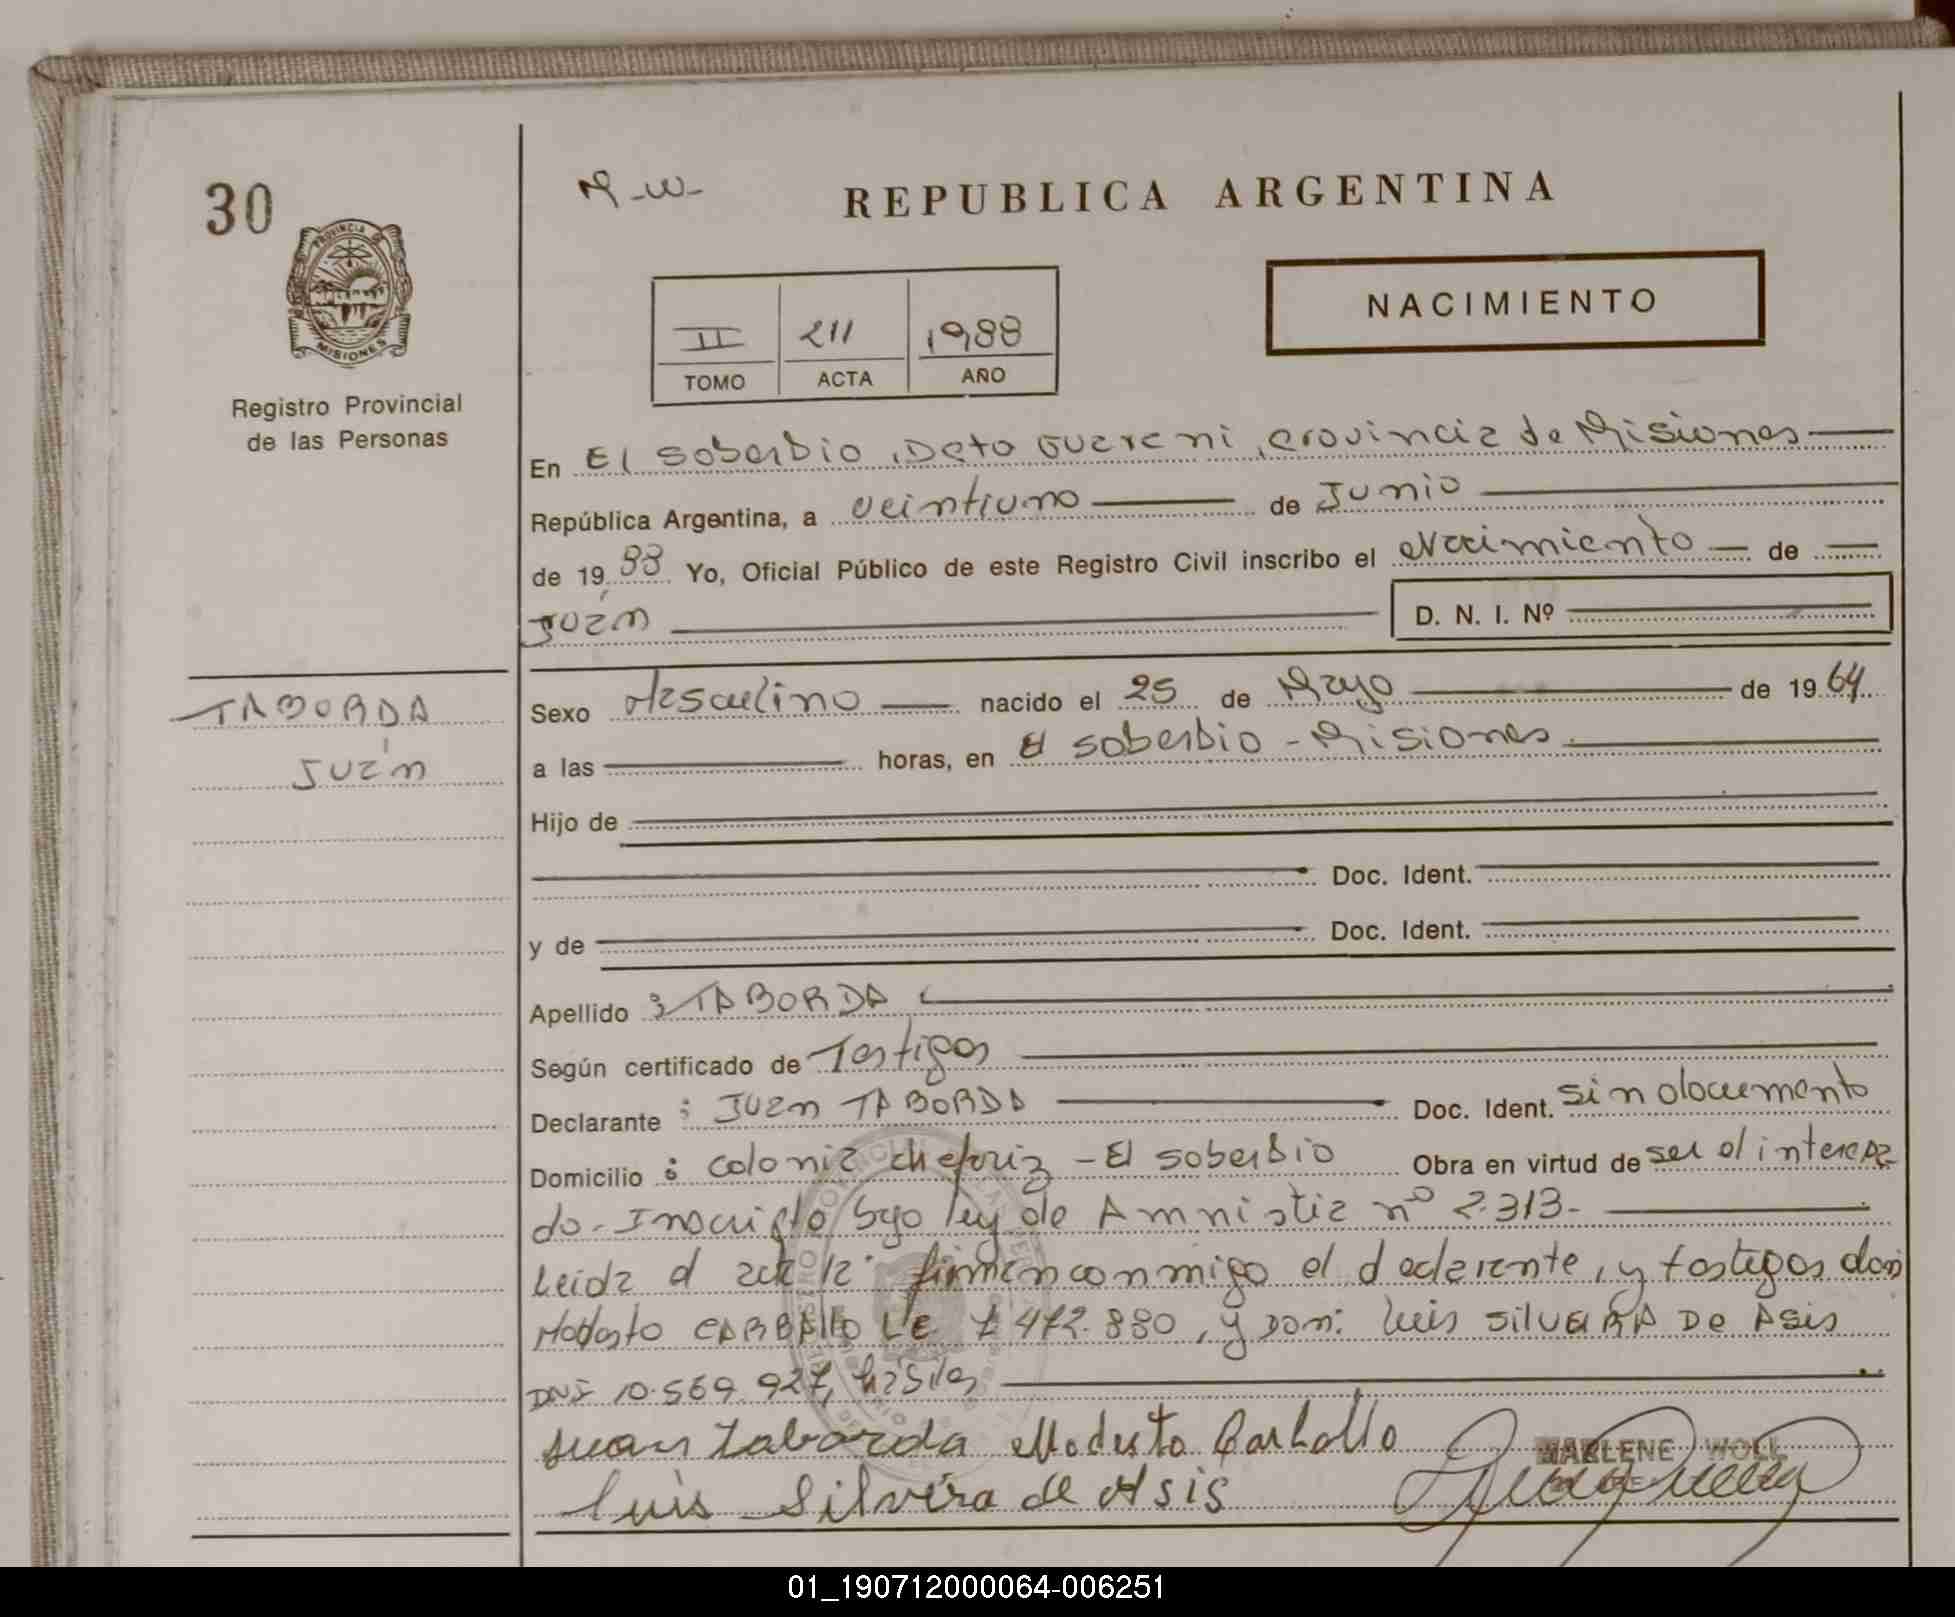 30
PROVINCIA DE
MISIONES
Registro Provincial
de las Personas
TABORDA
Juan
M-W-
REPUBLICA ARGENTINA
NACIMIENTO
II 211 1988
TOMO ACTA AÑO
En El Soberbio, Dpto Guarani, Provincia de Misiones
República Argentina, a veintiuno de Junio
de 1988 Yo, Oficial Público de este Registro Civil inscribo el Nacimiento de
Juan D. N. I. Nº
Sexo Masculino nacido el 25 de Mayo de 1964
a las horas, en El Soberbio - Misiones
Hijo de
Doc. Ident.
y de Doc. Ident.
Apellido : TABORDA
Según certificado de Testigos
Declarante : Juan TABORDA Doc. Ident. Sin documento
Domicilio : Colonia - El Soberbio Obra en virtud de ser el interesa
do. Inscripto bajo ley de Amnistia nº 2.313-
Leida el acta firman conmigo el declarante, y testigos don
Modesto CARBALLO LE 7.472.880, y don: Luis SilveRA De Asis
DNI 10.569.927, habiles
Juan Taborda Modesto Carballo
Luis Silvéra de Asis
MARLENE WOLL
01_190712000064-006251